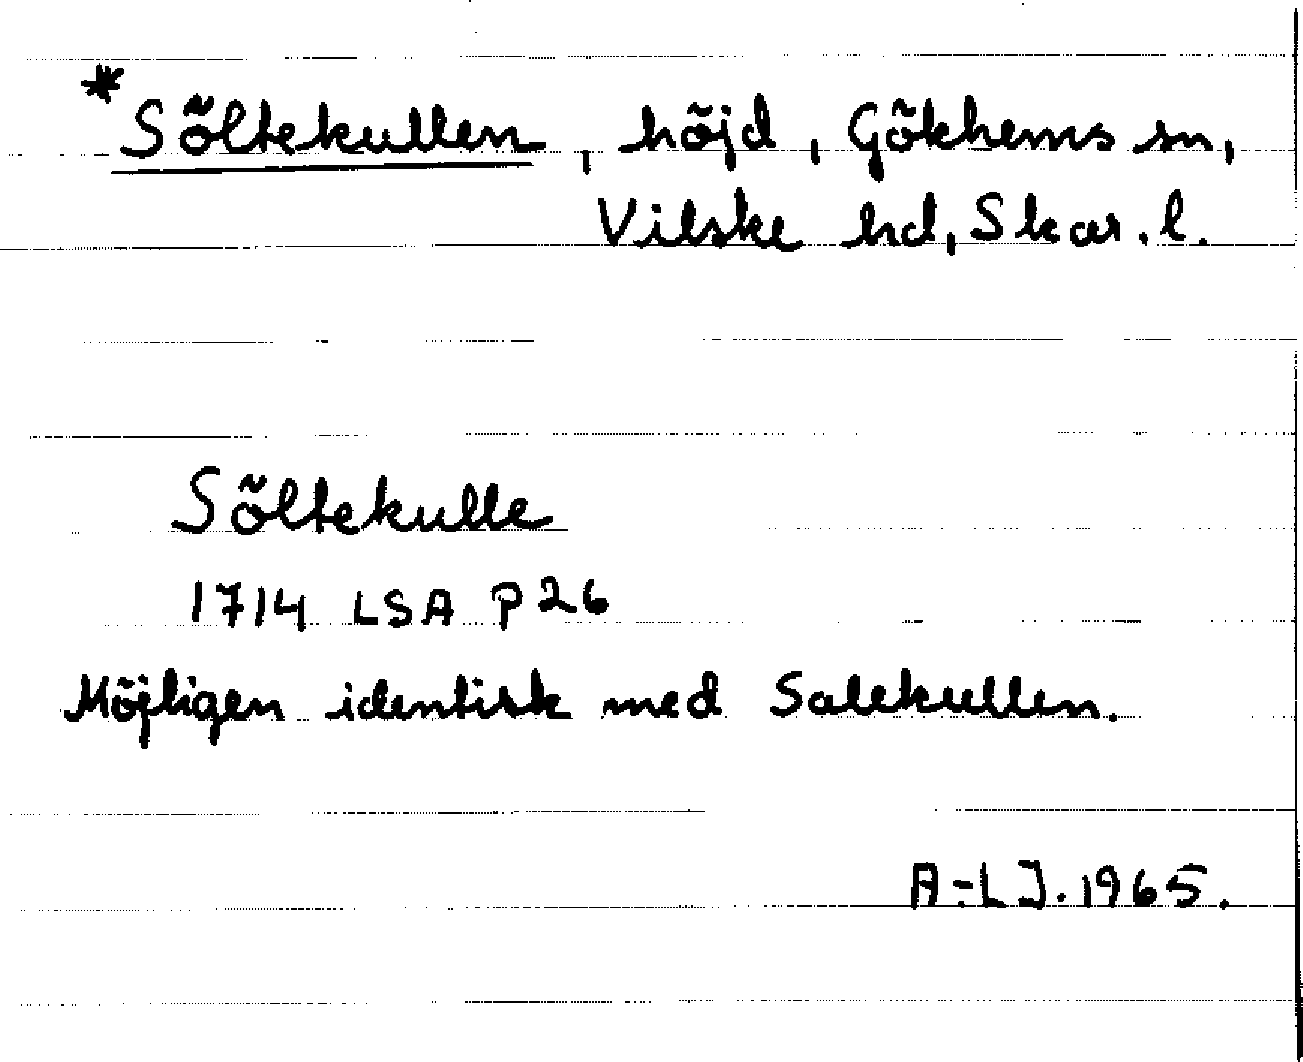 *Söltekullen, höjd, Gökhems sn,
Vilske hd, Skar. l.
Söltekulle
1714 LSA P 26
Möjligen identisk med Salekullen.
A-L J. 1965.